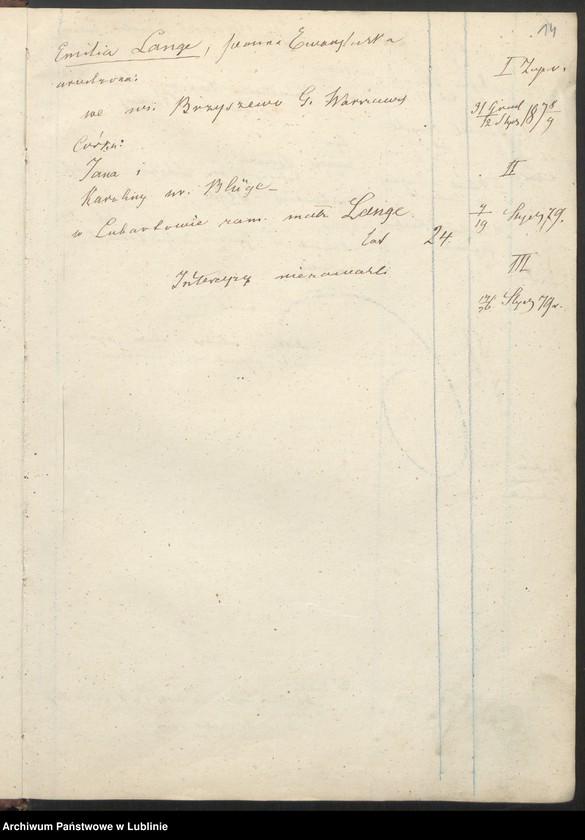 14
Emilia Lange, panna Ewangieliczka
urodzona:
we wsi Brzyszewo G. Warszaws
Córka:
Jana i
Karoliny ur. Blüge
w Lubartowie zam. małż Lange.
lat 24.
Intercyzy niezawarli
I Zapow.
31 Grud / 12 Stycz 1878/9
II
7/19 Stycz 79.
III
14/26 Stycz 79 r.
Archiwum Państwowe w Lublinie